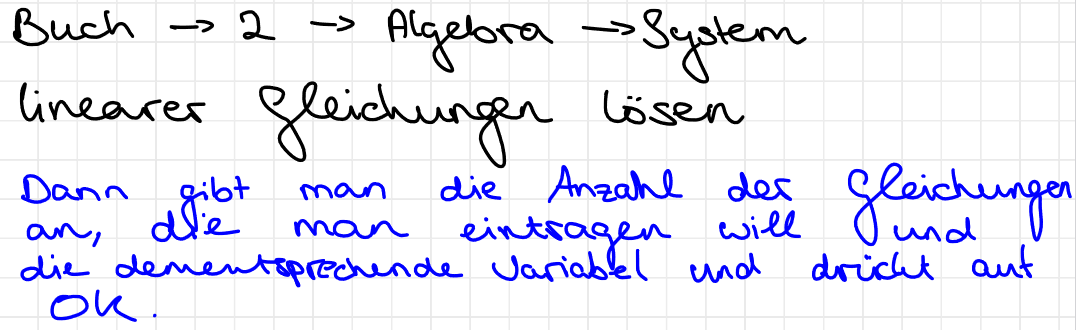 Buch → 2 → Algebra → System
linearer Gleichungen lösen
Dann gibt man die Anzahl der Gleichungen
an, die man eintragen will und
die dementsprechende Variabel und drückt auf
OK.